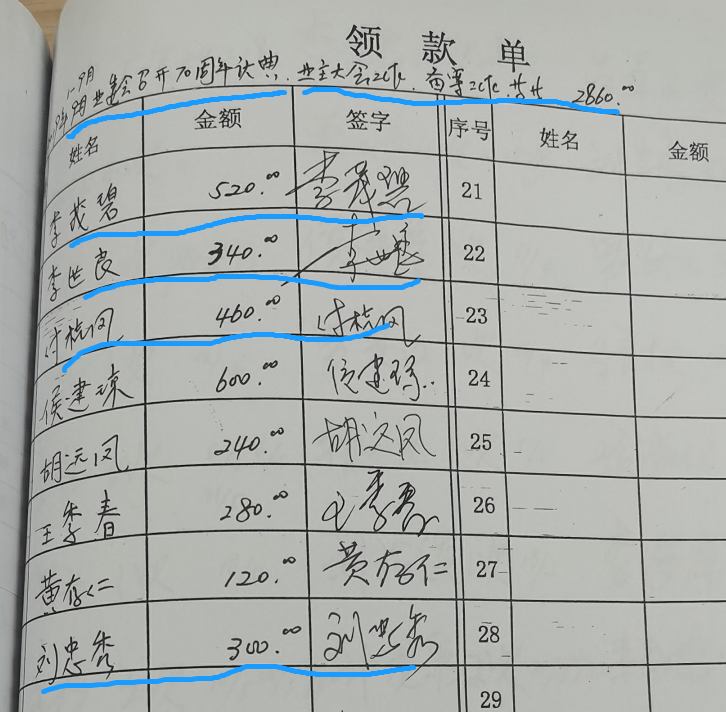 领款单
1-9月
年9月业建会召开70周年庆典.业主大会工作. 2860.00
姓名 金额 签字 序号 姓名 金额
李茂碧 520.00 李茂碧 21
李世良 340.00 22
付桂凤 460.00 付桂凤 23
侯建琼 600.00 侯建琼 24
胡远凤 240.00 胡远凤 25
王季春 280.00 王季春 26
黄存仁 120.00 黄存仁 27
刘忠秀 300.00 刘忠秀 28
29